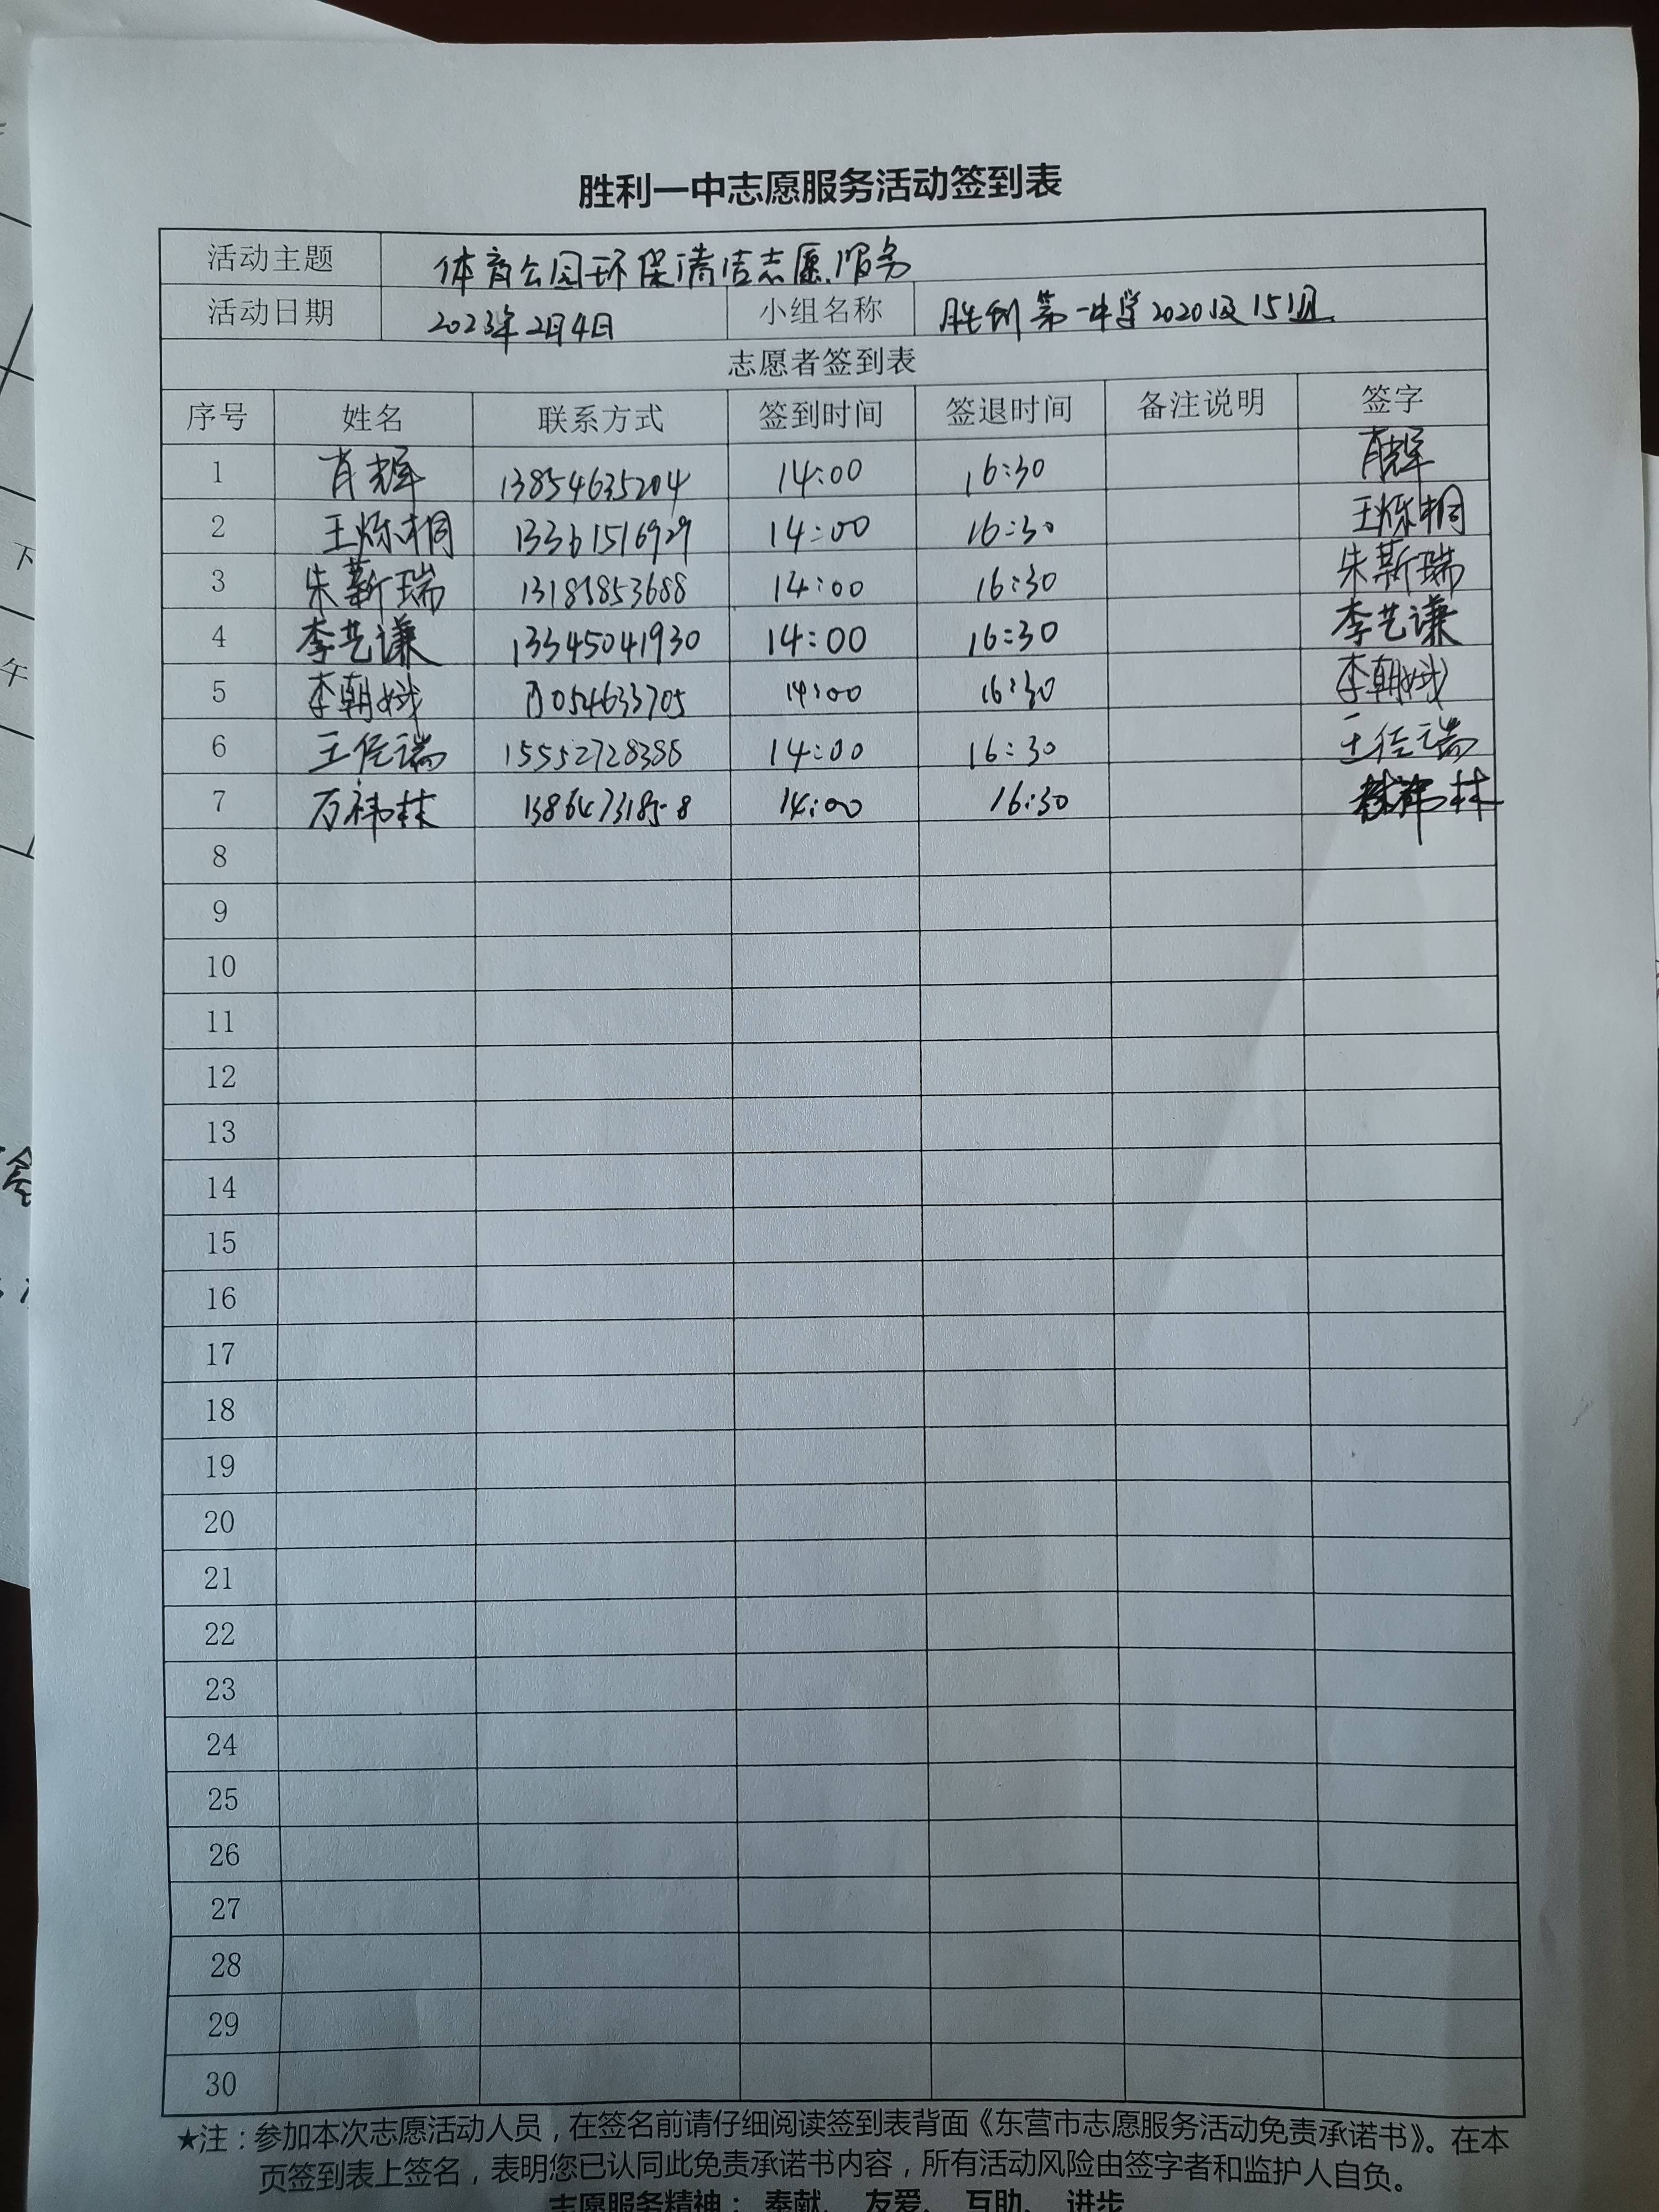 胜利一中志愿服务活动签到表
活动主题 体育公园环保清洁志愿服务
活动日期 2023年2月4日 小组名称 胜利第一中学2020级15组
志愿者签到表
序号 姓名 联系方式 签到时间 签退时间 备注说明 签字
1 肖辉 13854635204 14:00 16:30 肖辉
2 王烁桐 13361516929 14:00 16:30 王烁桐
3 朱蕲瑞 13181853688 14:00 16:30 朱蕲瑞
4 李艺谦 13345041930 14:00 16:30 李艺谦
5 李朝娥 054633705 14:00 16:30 李朝娥
6 王任瑞 15552728388 14:00 16:30 王任瑞
7 万祎林 13864731858 14:00 16:30 祎林
8
9
10
11
12
13
14
15
16
17
18
19
20
21
22
23
24
25
26
27
28
29
30
★注：参加本次志愿活动人员，在签名前请仔细阅读签到表背面《东营市志愿服务活动免责承诺书》。在本
页签到表上签名，表明您已认同此免责承诺书内容，所有活动风险由签字者和监护人自负。
志愿服务精神： 奉献、 友爱、 互助、 进步